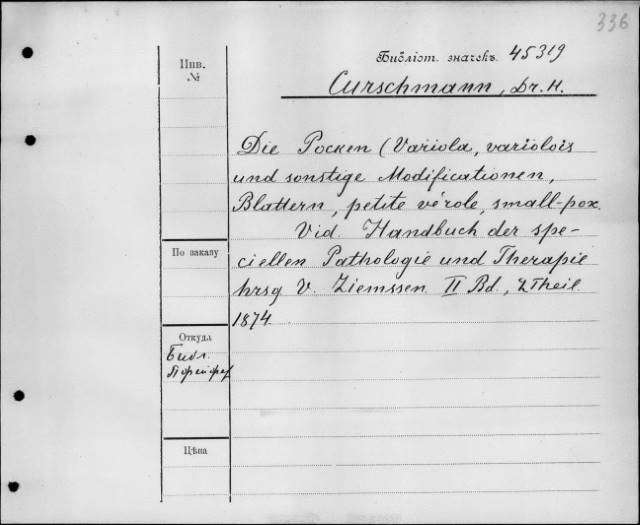 336
Библіот. значекъ. 45319
Инв.
№
Curschmann, Dr. H.
Die Pocken (Variola, variolois
und sonstige Modificationen,
Blattern, petite vérole, small-pox.
Vid. Handbuch der spe-
ciellen Pathologie und Therapie
hrsg V. Ziemssen II Bd, 2 Theil.
1874
По заказу
Откуда
Библ.
Цѣна